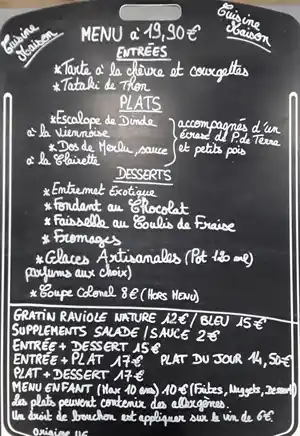 Cuisine Maison
Cuisine Maison
MENU à 19,90€
ENTRÉES
* Tarte à la chèvre et courgettes
* Tataki de Thon
PLATS
* Escalope de Dinde
à la Viennoise
* Dos de Merlu, sauce
à la Clairette
accompagnés d'un
écrasé d P. de Terre
et petits pois
DESSERTS
* Entremet Exotique
* Fondant au Chocolat
* Faisselle au Coulis de Fraise
* Fromages
* Glaces Artisanales (Pot 120 ml)
parfums aux choix)
* Coupe Colonel 8€ (HORS MENU)
GRATIN RAVIOLE NATURE 12€ / BLEU 15€
SUPPLEMENTS SALADE / SAUCE 2€
ENTRÉE + DESSERT 15€
ENTRÉE + PLAT 17€ PLAT DU JOUR 14,50€
PLAT + DESSERT 17€
MENU ENFANT (Max 10 ans) 10€ (Frites, Nuggets, Dessert)
Les plats peuvent contenir des allergènes.
Un droit de bouchon est appliquer sur le vin de 6€.
Origine UE